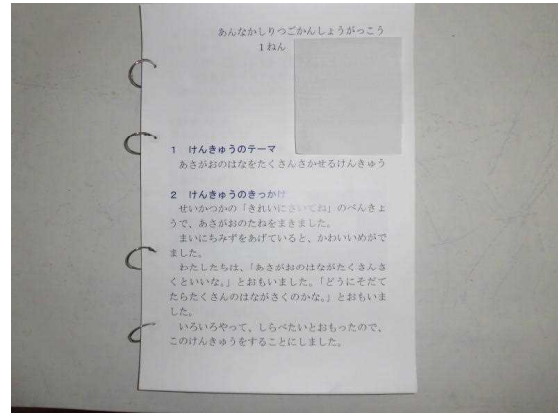 あんなかしりつごかんしょうがっこう
1ねん
1 けんきゅうのテーマ
あさがおのはなをたくさんさかせるけんきゅう
2 けんきゅうのきっかけ
せいかつかの「きれいにさいてね」のべんきょ
うで、あさがおのたねをまきました。
まいにちみずをあげていると、かわいいめがで
ました。
わたしたちは、「あさがおのはながたくさんさ
くといいな。」とおもいました。「どうにそだて
たらたくさんのはながさくのかな。」とおもいま
した。
いろいろやって、しらべたいとおもったので、
このけんきゅうをすることにしました。